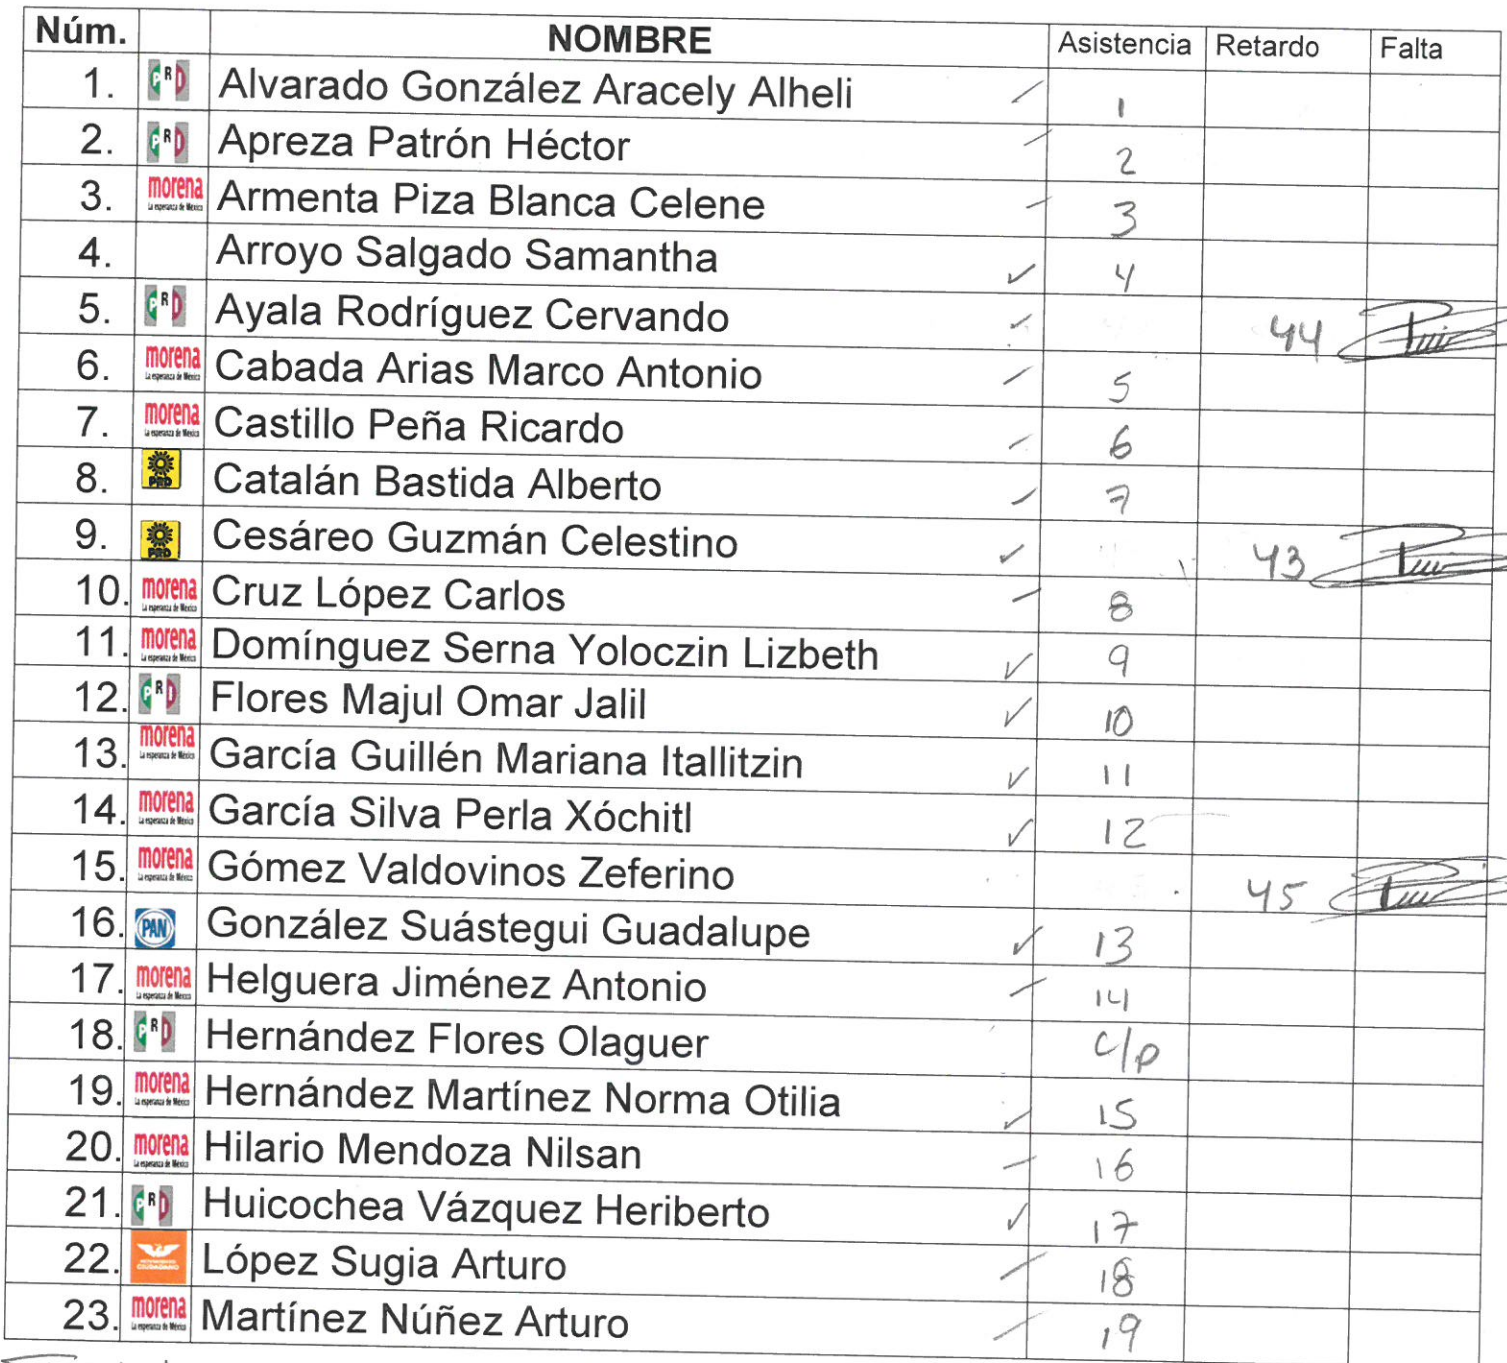 Núm. NOMBRE Asistencia Retardo Falta
1. PRI Alvarado González Aracely Alheli 1
2. PRI Apreza Patrón Héctor 2
3. morena La esperanza de México Armenta Piza Blanca Celene 3
4. Arroyo Salgado Samantha 4
5. PRI Ayala Rodríguez Cervando 44
6. morena La esperanza de México Cabada Arias Marco Antonio 5
7. morena La esperanza de México Castillo Peña Ricardo 6
8. PRD Catalán Bastida Alberto 7
9. PRD Cesáreo Guzmán Celestino 43
10. morena La esperanza de México Cruz López Carlos 8
11. morena La esperanza de México Domínguez Serna Yoloczin Lizbeth 9
12. PRI Flores Majul Omar Jalil 10
13. morena La esperanza de México García Guillén Mariana Itallitzin 11
14. morena La esperanza de México García Silva Perla Xóchitl 12
15. morena La esperanza de México Gómez Valdovinos Zeferino 45
16. PAN González Suástegui Guadalupe 13
17. morena La esperanza de México Helguera Jiménez Antonio 14
18. PRI Hernández Flores Olaguer c/p
19. morena La esperanza de México Hernández Martínez Norma Otilia 15
20. morena La esperanza de México Hilario Mendoza Nilsan 16
21. PRI Huicochea Vázquez Heriberto 17
22. CIUDADANO López Sugia Arturo 18
23. morena La esperanza de México Martínez Núñez Arturo 19